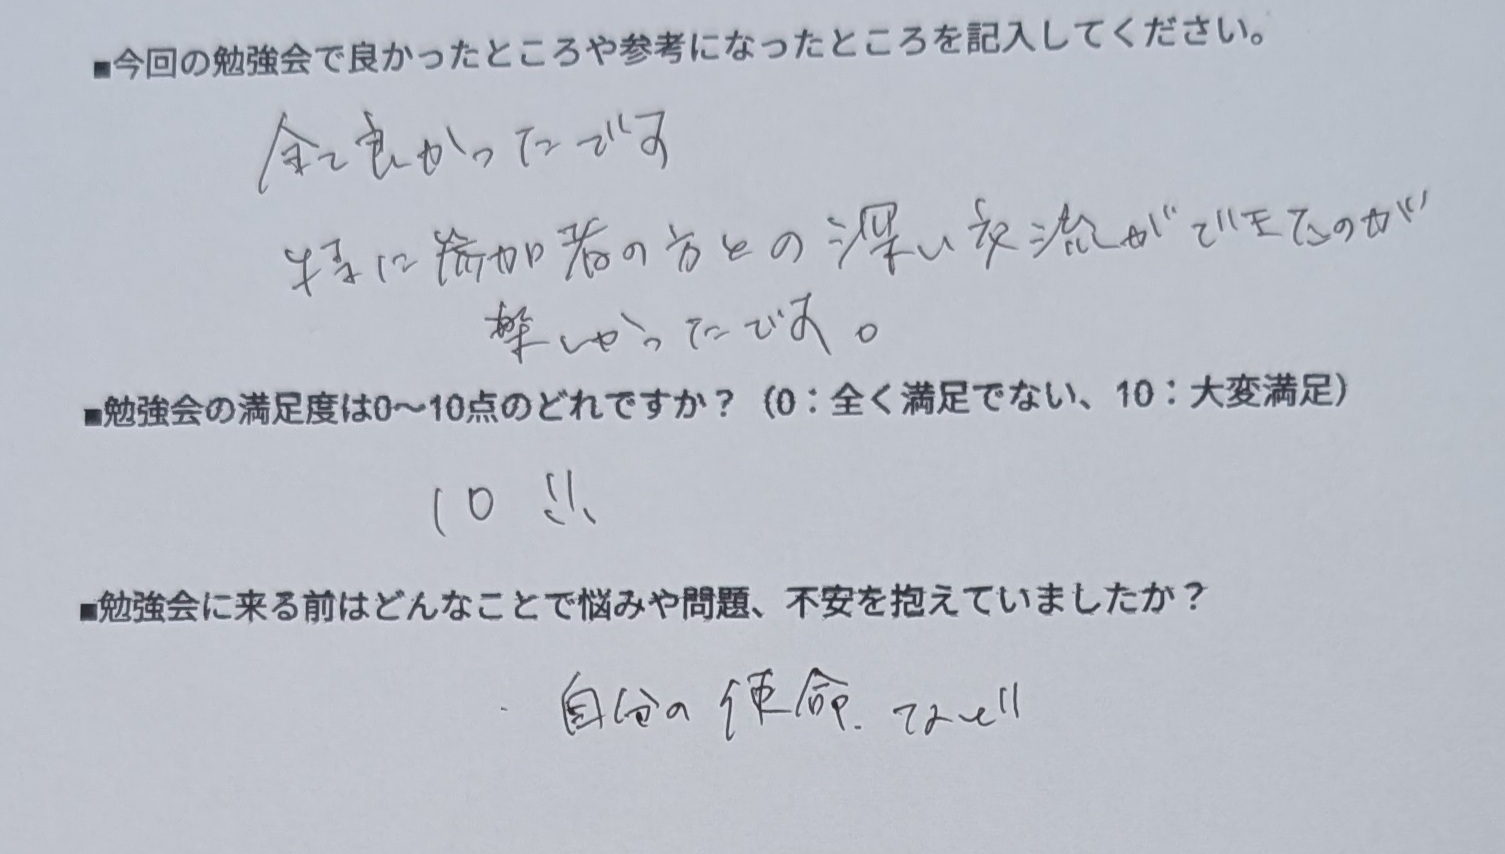 ■今回の勉強会で良かったところや参考になったところを記入してください。
全て良かったです
特に参加者の方との深い交流ができたのが
楽しかったです。
■勉強会の満足度は0～10点のどれですか？（0：全く満足でない、10：大変満足）
10 !!
■勉強会に来る前はどんなことで悩みや問題、不安を抱えていましたか？
・自分の使命.など